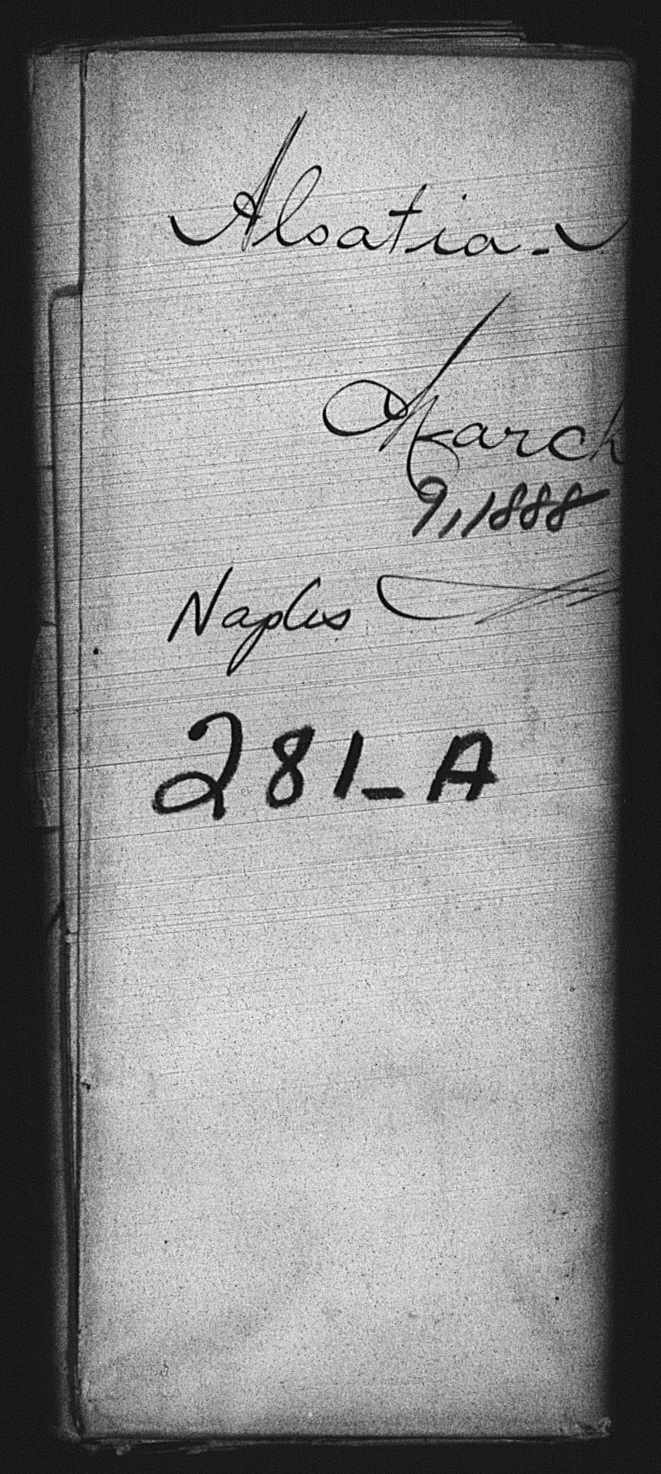 Alsatia -
March
9, 1888
Naples
281-A